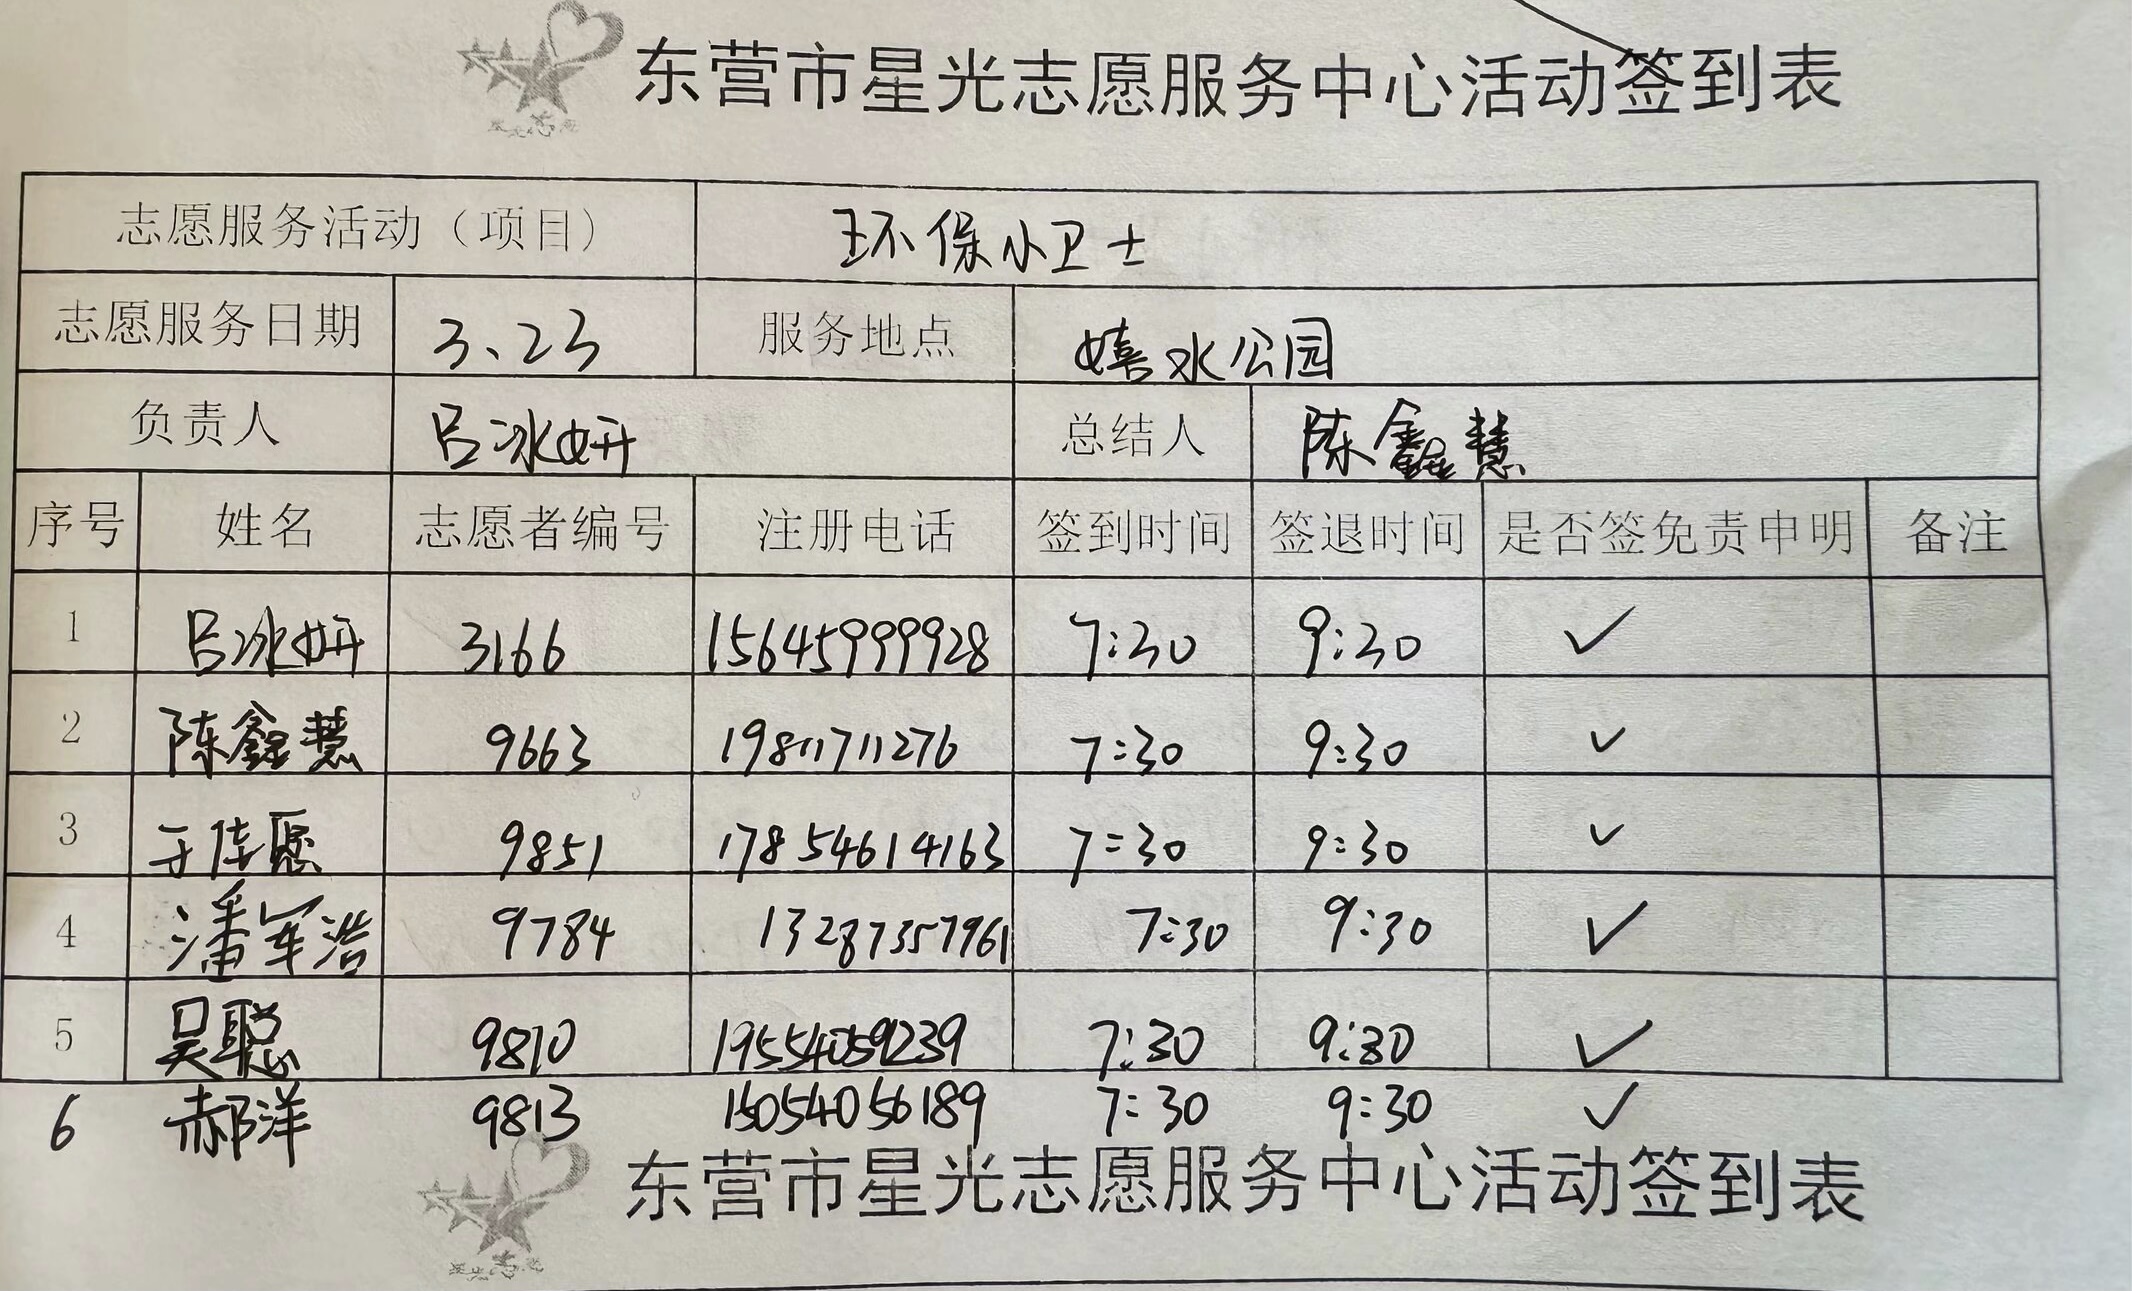 东营市星光志愿服务中心活动签到表
志愿服务活动（项目） 环保小卫士
志愿服务日期 3、23 服务地点 嬉水公园
负责人 吕冰妍 总结人 陈鑫慧
序号 姓名 志愿者编号 注册电话 签到时间 签退时间 是否签免责申明 备注
1 吕冰妍 3166 15645999928 7:30 9:30 ✓
2 陈鑫慧 9663 19811711276 7:30 9:30 ✓
3 于佳愿 9851 17854614163 7:30 9:30 ✓
4 潘军浩 9784 13287357961 7:30 9:30 ✓
5 吴聪 9810 19554059239 7:30 9:30 ✓
6 郝洋 9813 15054056189 7:30 9:30 ✓
东营市星光志愿服务中心活动签到表